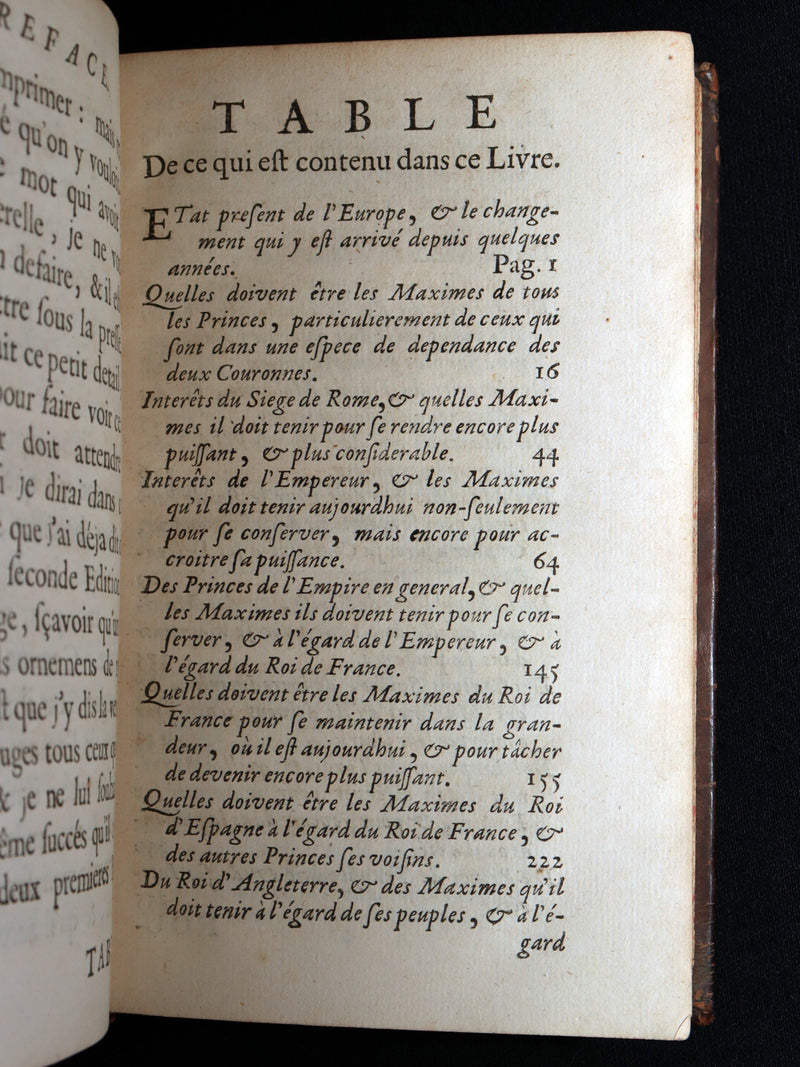 REFACE
mprimer :
é qu'on y
mot qui
relle, je
defaire,
tre sous la
it ce petit
our faire voir
doit
je dirai dans
que j'ai déja
seconde
e, sçavoir
s ornemens
t que j'y
uges tous
je ne lui
ême succés
deux
TABLE
De ce qui eſt contenu dans ce Livre.
ETat preſent de l'Europe, & le change-
ment qui y eſt arrivé depuis quelques
années. Pag. 1
Quelles doivent être les Maximes de tous
les Princes, particulierement de ceux qui
ſont dans une eſpece de dependance des
deux Couronnes. 16
Interêts du Siege de Rome, & quelles Maxi-
mes il doit tenir pour ſe rendre encore plus
puiſſant, & plus conſiderable. 44
Interêts de l'Empereur, & les Maximes
qu'il doit tenir aujourdhui non-ſeulement
pour ſe conſerver, mais encore pour ac-
croitre ſa puiſſance. 64
Des Princes de l'Empire en general, & quel-
les Maximes ils doivent tenir pour ſe con-
ſerver, & à l'égard de l'Empereur, & à
l'égard du Roi de France. 145
Quelles doivent être les Maximes du Roi de
France pour ſe maintenir dans la gran-
deur, où il eſt aujourdhui, & pour tâcher
de devenir encore plus puiſſant. 155
Quelles doivent être les Maximes du Roi
d'Eſpagne à l'égard du Roi de France, &
des autres Princes ſes voiſins. 222
Du Roi d'Angleterre, & des Maximes qu'il
doit tenir à l'égard de ſes peuples, & à l'é-
gard